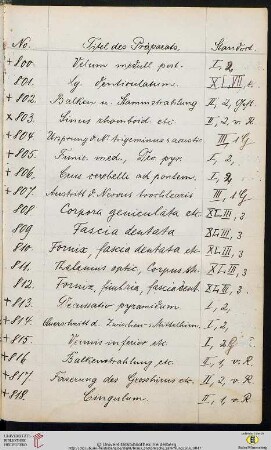 No. Titel des Präparats. Standort.
+ 800. Velum medull. post. I, 2,
801. Lig. denticulatum. XI, VII
+ 802. Balken u. Stammstrahlung II, 2,
x 803. Sinus rhomboid. etc. II, 2, v. R.
+ 804. Ursprung d. N. trigeminus III, 1 G
+ 805. Funic. med., pyr. I, 2,
+ 806. Crus cerebelli ad pontem. I, 2,
+ 807. Austritt d. Nervus trochlearis III, 1 G
808. Corpora geniculata etc. XL, III, 3
809 Fascia dentata XL, III, 3.
810. Fornix, fascia dentata etc. XL, III, 3
811. Thalamus optic., Corpus str. XL, III, 3
812. Fornix, fimbria, fascia dent. XL, III, 3
+ 813. Decussatio pyramidum. I, 2,
+ 814. Querschnitt d. Zwischen- u. Mittelhirn. I, 2,
+ 815. Vermis inferior etc. I, 2
+ 816. Balkenstrahlung etc. II, 1, v. R.
+ 817. Faserung des Grosshirns etc. II, 2, v. R.
+ 818. Cingulum. II, 1, v. R.
UNIVERSITÄTS-BIBLIOTHEK HEIDELBERG
© Universitätsbibliothek Heidelberg